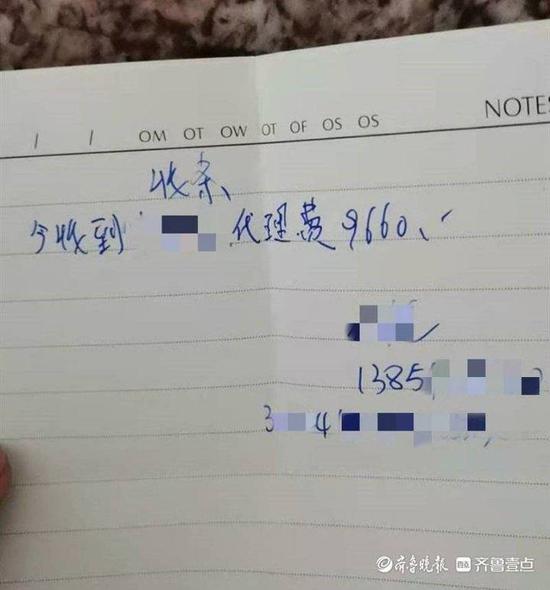 NOTES
/ / OM OT OW OT OF OS OS
收条、
今收到 代理费9660、
1385
3 4
齐鲁晚报 齐鲁壹点